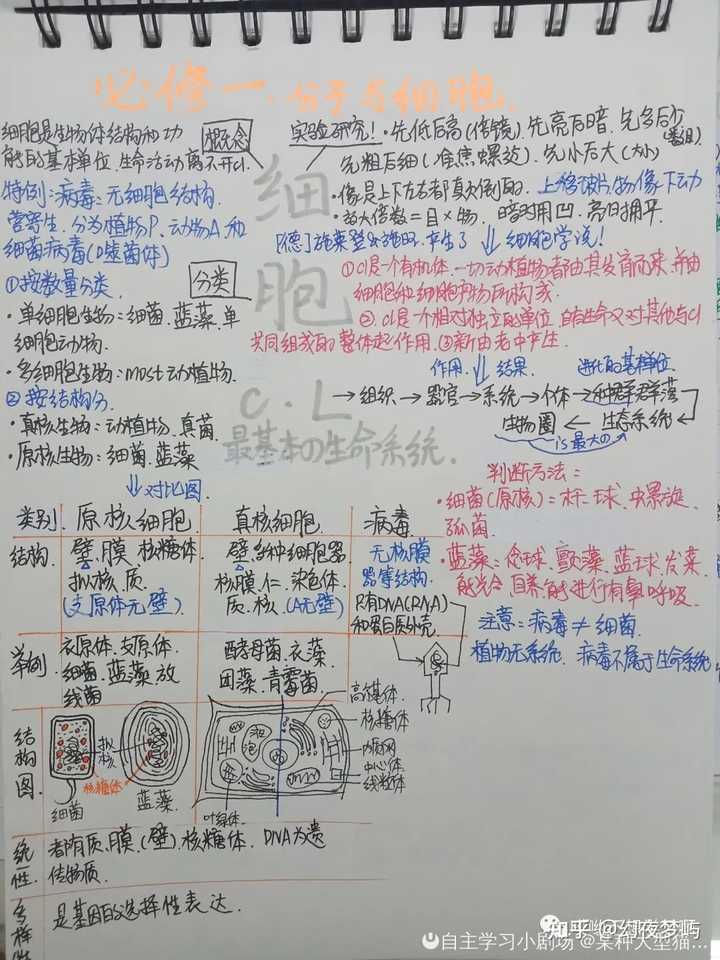 必修一·分子与细胞
细胞是生物体结构和功
能的基本单位,生命活动离不开cl.
概念
特例:病毒:无细胞结构.
营寄生.分为植物P、动物A、和
细菌病毒(噬菌体)
实验研究!·先低后高(倍镜).先亮后暗.先多后少
先粗后细(准焦螺旋).先小后大(大小)
·像是上下左右都真实倒的.上移玻片,物像下动
·放大倍数=目×物.暗时用凹.亮时用平.
[德]施莱登&施旺.产生了⇓细胞学说!
①cl是一个有机体.一切动植物都由其发育而来,并由
细胞和细胞产物所构成.
②.cl是一个相对独立的单位,自有生命又对其他与cl
共同组成的整体起作用.③新由老中产生.
细胞
C.L
最基本の生命系统.
①按数量分类.
分类
·单细胞生物:细菌.蓝藻.单
细胞动物.
·多细胞生物:most动植物.
②按结构分.
·真核生物:动植物.真菌.
·原核生物:细菌.蓝藻
⇓对比图.
作用.⇓结果.
进化的基本单位.
→组织→器官→系统→个体→种群→群落
生物圈←生态系统←
is最大の
判断方法:
·细菌(原核)=杆.球.螺旋.
弧菌.
·蓝藻:念球.颤藻.蓝球.发菜
能光合.自养.能进行有氧呼吸.
注意:病毒≠细菌.
植物无系统.病毒不属于生命系统
类别 原核细胞 真核细胞 病毒
结构.
壁.膜.核糖体.
拟核.质.
(支原体无壁)
壁.多种细胞器
核膜.仁.染色体.
质.核.(A无壁)
无核膜
器等结构.
只有DNA(RNA)
和蛋白质外壳.
举例
衣原体.支原体.
细菌.蓝藻.放
线菌
酵母菌.衣藻.
团藻.青霉菌.
结构图.
拟核
核糖体
细菌
蓝藻.
液泡
叶绿体.
高尔基体.
核糖体.
内质网
中心体.
线粒体.
统一性.
都有质.膜.(壁).核糖体. DNA为遗
传物质.
多样性
是基因的选择性表达.
知乎 @幻夜梦屿
自主学习小剧场 @某种大型猫...